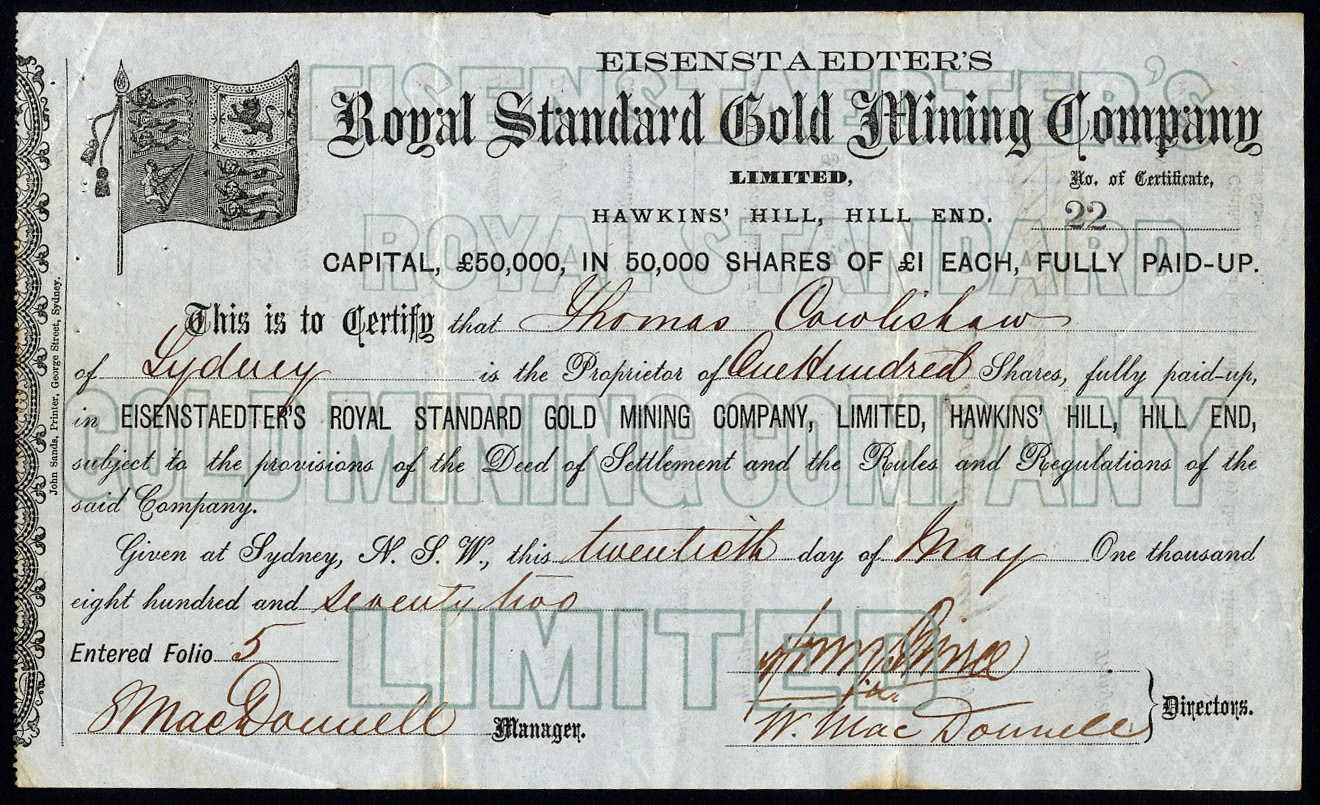 EISENSTAEDTER'S
Royal Standard Gold Mining Company
LIMITED,
No. of Certificate,
HAWKINS' HILL, HILL END.
22
CAPITAL, £50,000, IN 50,000 SHARES OF £1 EACH, FULLY PAID-UP.
This is to Certify that Thomas Cowlishaw
of Sydney is the Proprietor of One Hundred Shares, fully paid-up,
in EISENSTAEDTER'S ROYAL STANDARD GOLD MINING COMPANY, LIMITED, HAWKINS' HILL, HILL END,
subject to the provisions of the Deed of Settlement and the Rules and Regulations of the
said Company.
Given at Sydney, N. S. W., this twentieth day of May One thousand
eight hundred and seventy two
Entered Folio 5
S MacDonnell Manager.
W. MacDonnell
Directors.
John Sands, Printer, George Street, Sydney.
EISENSTAEDTER'S
ROYAL STANDARD
GOLD MINING COMPANY
LIMITED